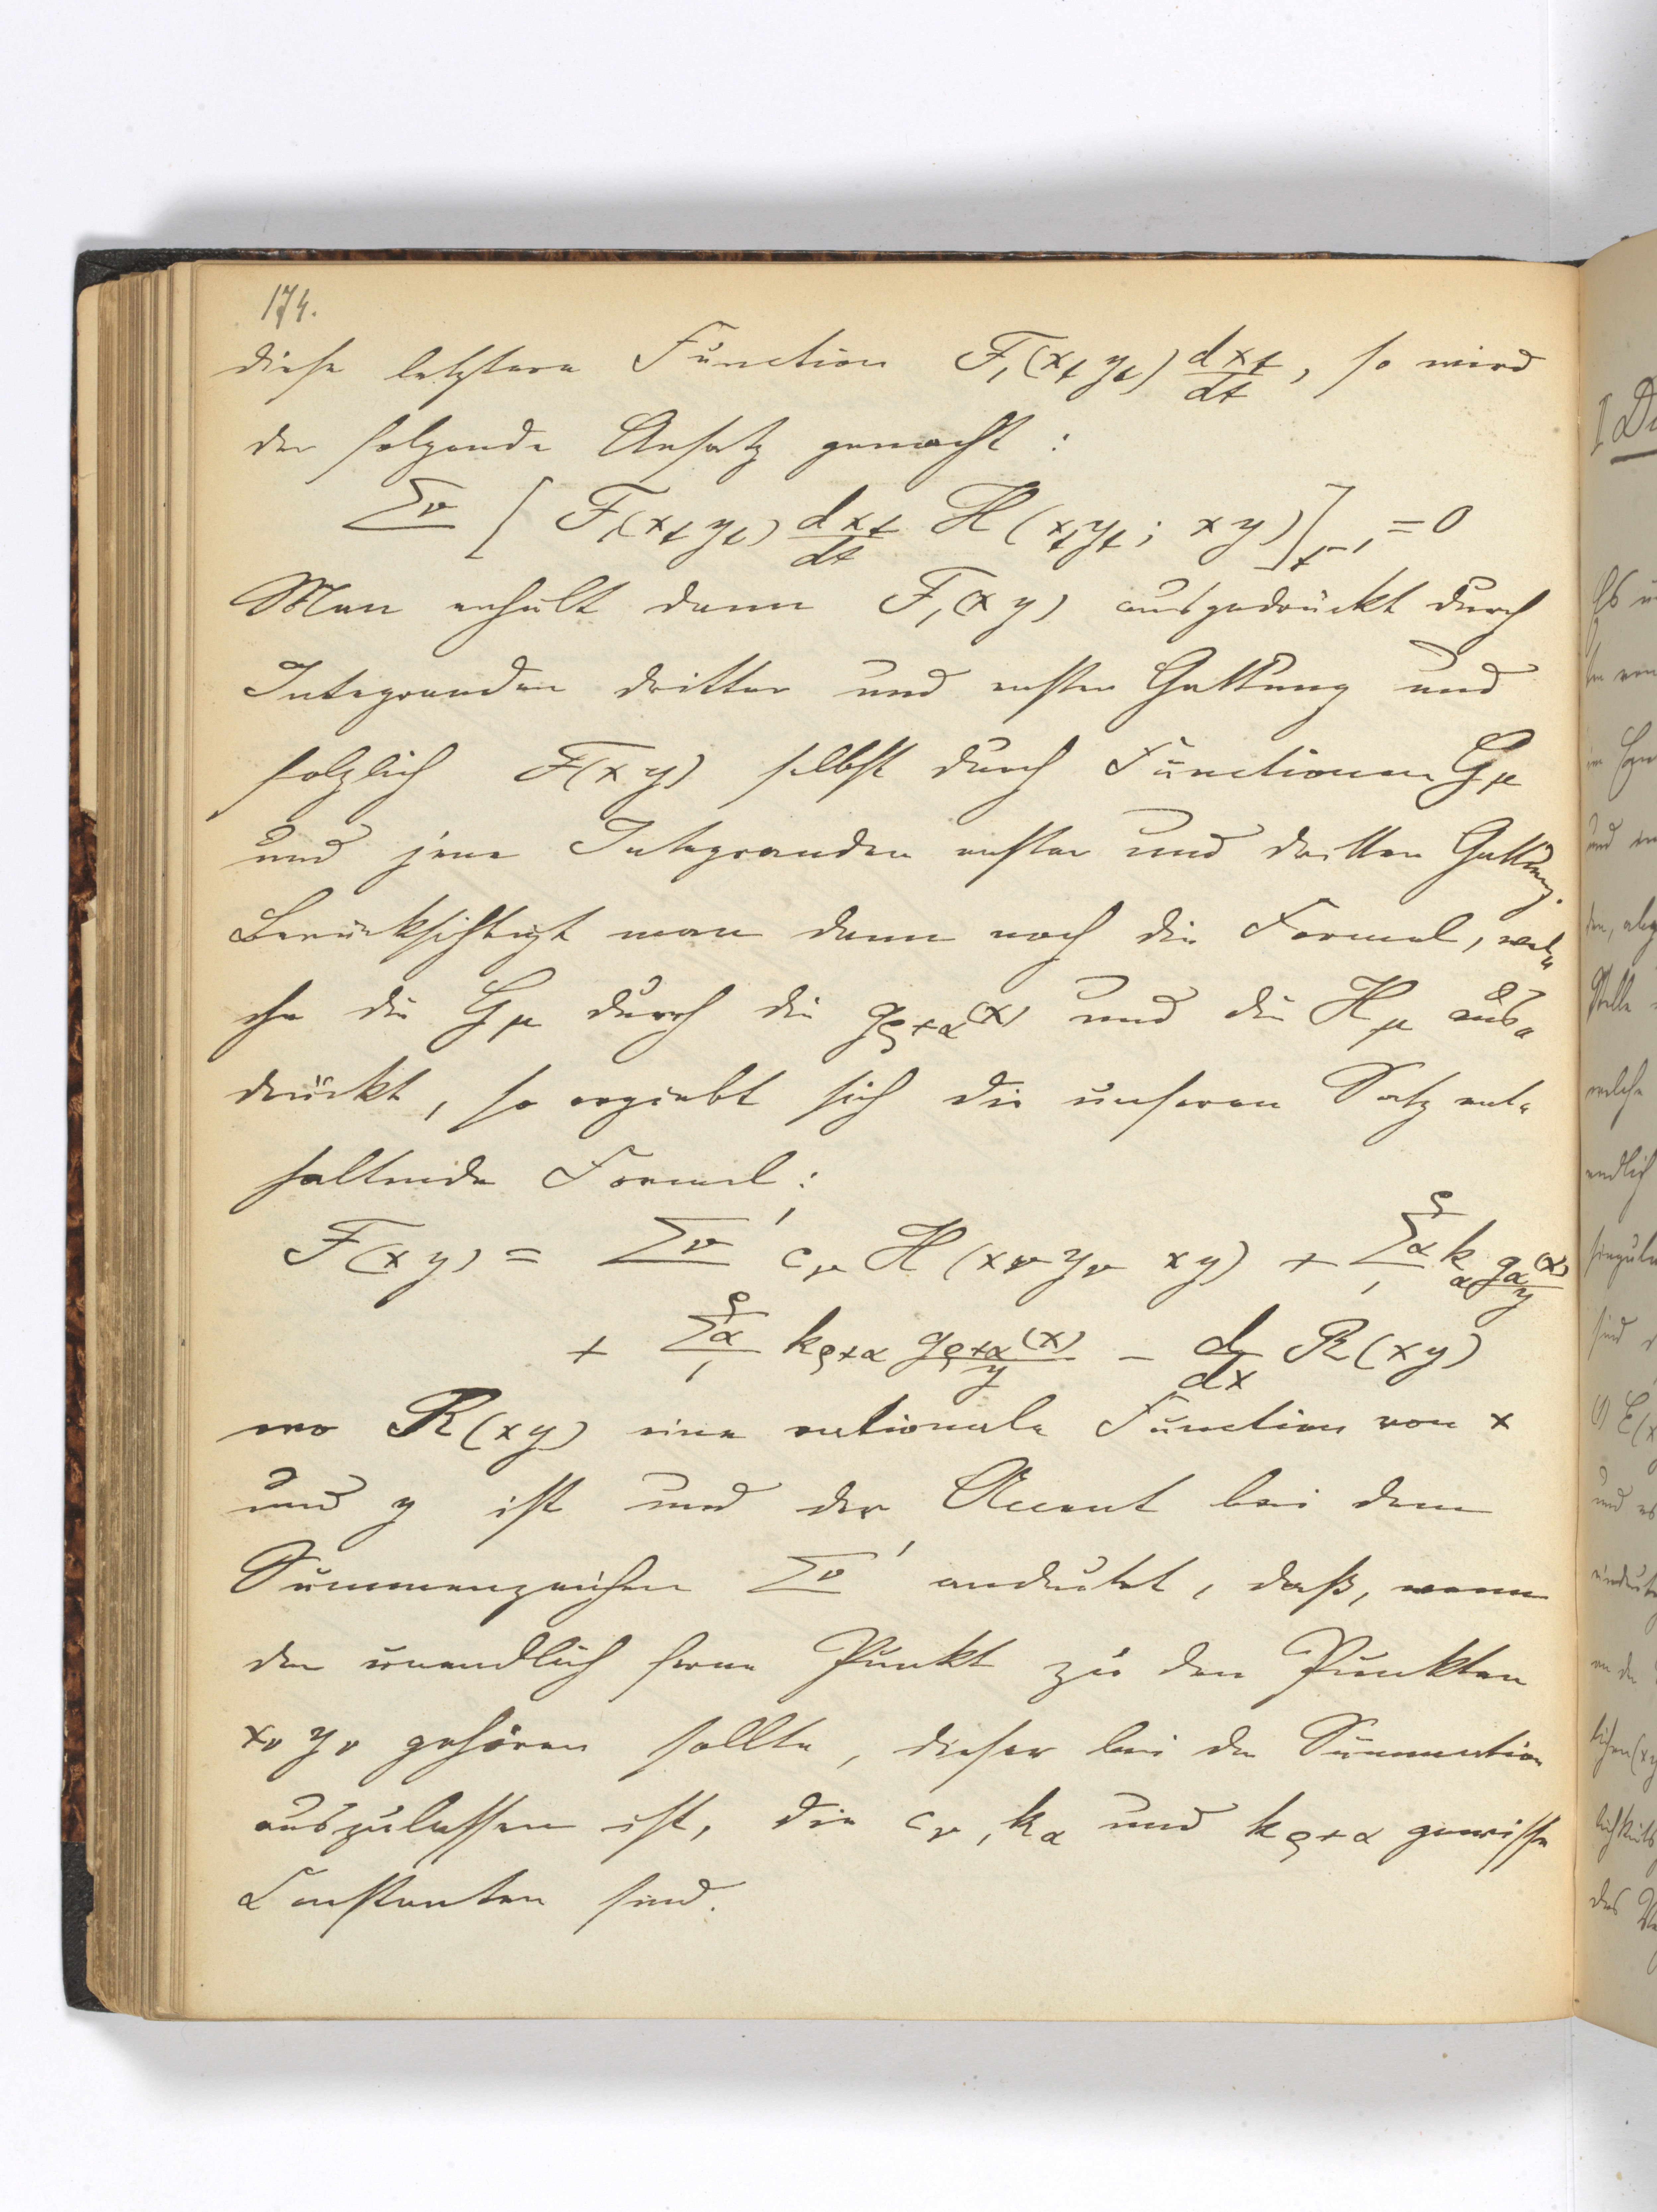 174.
diese letztere Function F₁(x_t y_t) dx_t/dt, so wird
der folgende Ansatz gemacht:
Σν [F₁(x_t y_t) dx_t/dt H(x_t y_t; xy)]_{t^{-1}} = 0
Man erhält dann F₁(xy) ausgedrückt durch
Integranden dritter und erster Gattung und
folglich F(xy) selbst durch Functionen G_μ
und jene Integranden erster und dritter Gattung.
Berücksichtigt man dann noch die Formel, wel=
che die G_μ durch die g_{ρ+α}(x) und die H_μ aus=
drückt, so ergiebt sich die unseren Satz ent=
haltende Formel:
F(xy) = Σν' c_ν H(x_ν y_ν xy) + Σα₁^ρ k_α g_α(x)/y
+ Σα₁^ρ k_{ρ+α} g_{ρ+α}(x)/y − d/dx R(xy)
wo R(xy) eine rationale Function von x
und y ist und der Accent bei dem
Summenzeichen Σν' andeutet, daß, wenn
der unendlich ferne Punkt zu den Punkten
x_ν y_ν gehören sollte, dieser bei der Summation
auszulassen ist, die c_ν, k_α und k_{ρ+α} gewisse
Constanten sind.